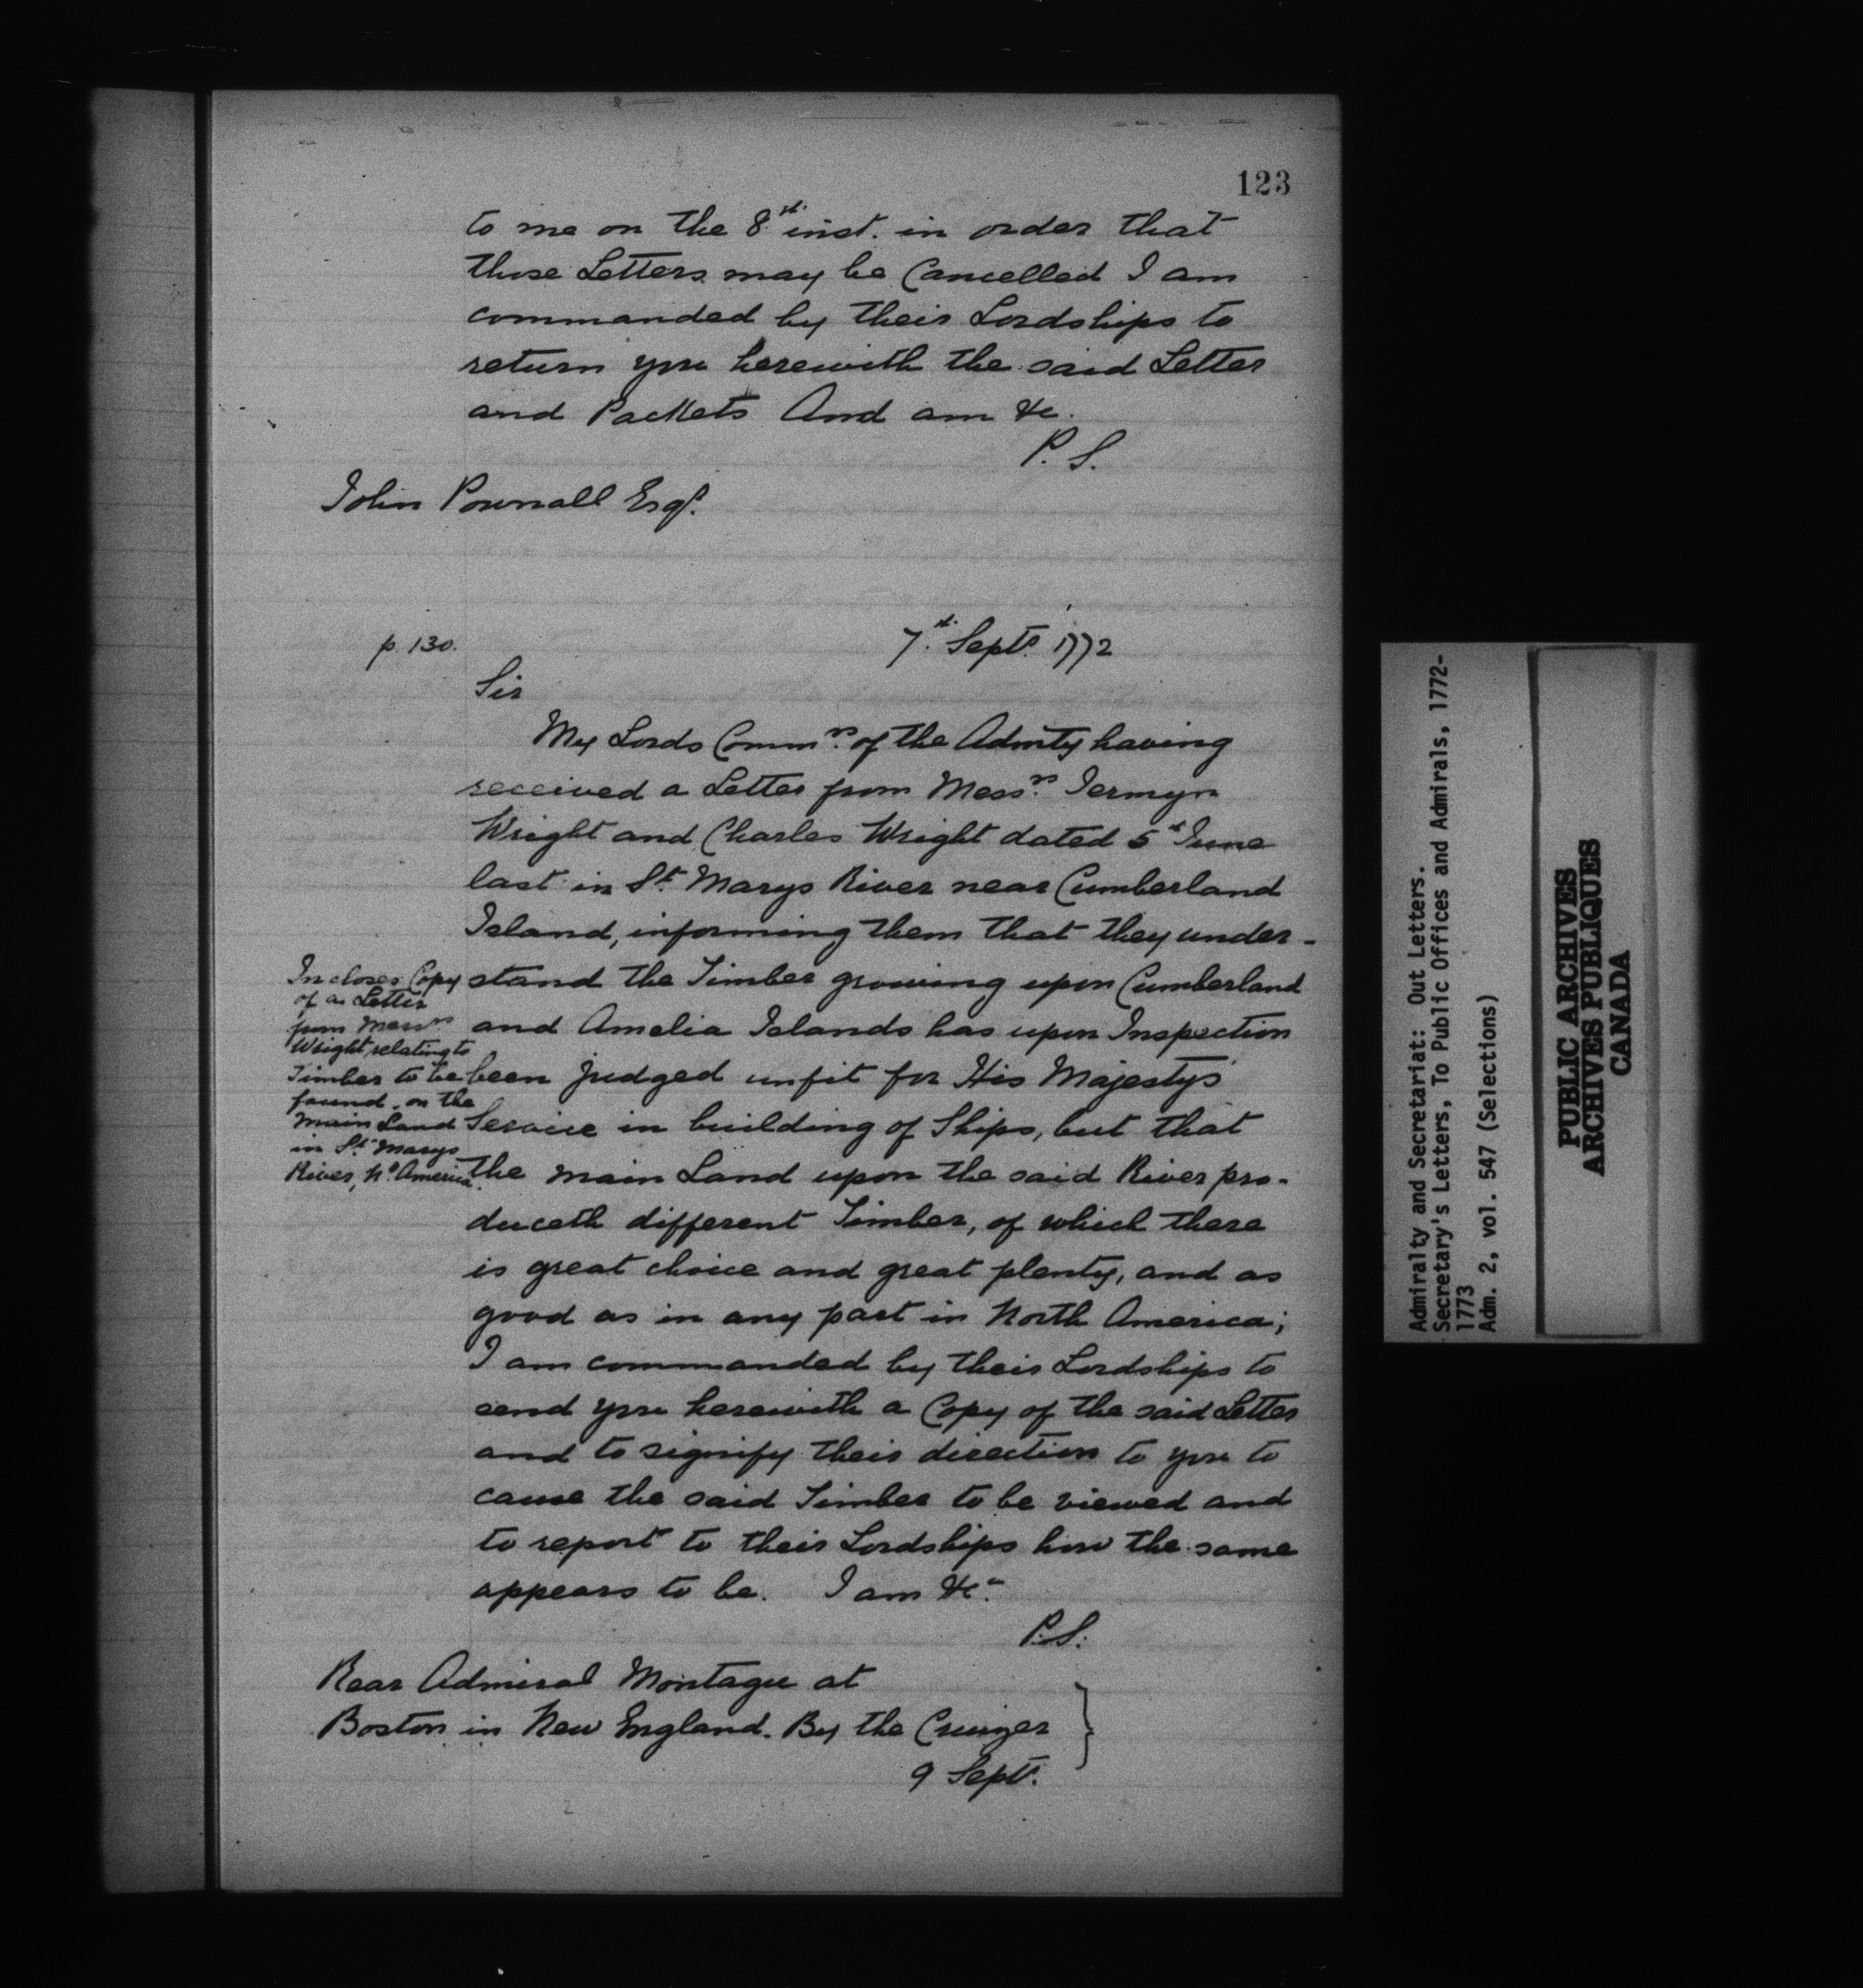 123
to me on the 8th inst. in order that
those Letters may be Cancelled I am
commanded by their Lordships to
return you herewith the said Letter
and Packets And am &c.
P. S.
John Pownall Esqr.
p. 130.
7th Septr. 1772
Sir
My Lords Commrs. of the Admty having
received a Letter from Messrs. Jermyn
Wright and Charles Wright dated 5th June
last in St. Marys River near Cumberland
Island, informing them that they under-
stand the Timber growing upon Cumberland
and Amelia Islands has upon Inspection
been judged unfit for His Majestys
Service in building of Ships, but that
the main Land upon the said River pro-
duceth different Timber, of which there
is great choice and great plenty, and as
good as in any part in North America;
I am commanded by their Lordships to
send you herewith a Copy of the said Letter
and to signify their direction to you to
cause the said Timber to be viewed and
to report to their Lordships how the same
appears to be. I am &ca.
P.S.
Incloses Copy
of a Letter
from Messrs
Wright, relating to
Timber to be
found on the
Main Land
in St. Marys
River, No. America.
Rear Admiral Montagu at
Boston in New England. By the Cruizer
9 Septr.
Admiralty and Secretariat: Out Letters.
Secretary's Letters, To Public Offices and Admirals, 1772-
1773
Adm. 2, vol. 547 (Selections)
PUBLIC ARCHIVES
ARCHIVES PUBLIQUES
CANADA